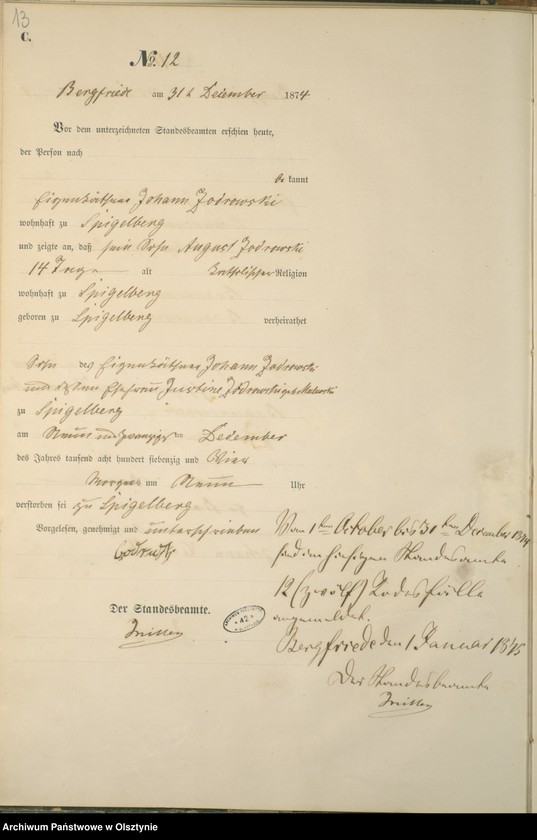 13
C.
No. 12
Bergfriede am 31t December 1874
Vor dem unterzeichneten Standesbeamten erschien heute,
der Person nach
be kannt
Eigenkäthner Johann Zodrowski
wohnhaft zu Spigelberg
und zeigte an, daß sein Sohn August Zodrowski
14 Tage alt katholischer Religion
wohnhaft zu Spigelberg
geboren zu Spigelberg verheirathet
Sohn des Eigenkäthner Johann Zodrowski
und dessen Ehefrau Justine Zodrowski geb.
zu Spigelberg
am Neun und zwanzigsten December
des Jahres tausend acht hundert siebenzig und Vier
Morgens um Neun Uhr
verstorben sei zu Spigelberg
Vorgelesen, genehmigt und unterschrieben
Der Standesbeamte.
42
Vom 1ten October bis 31ten December 1874
sind im hiesigen Standesamte
12 (zwölf) Todesfälle
angemeldet.
Bergfriede den 1 Januar 1875
Der Standesbeamte
Archiwum Państwowe w Olsztynie